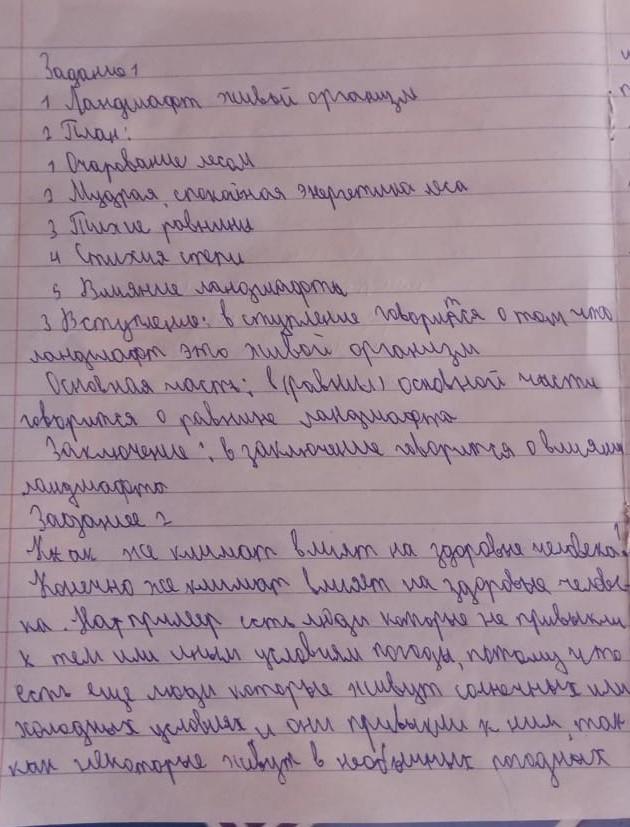 Задание 1
1 Ландшафт живой организм
2 План:
1 Очарование лесом
2 Мудрая, спокойная энергетика леса
3 Тихие равнины
4 Стихия степи
5 Влияние ландшафта
3 Вступление: в ступление говорится о том что
ландшафт это живой организм
Основная часть: в (равнин) основной части
говорится о равнине ландшафта
Заключение: в заключение говорится о влияни
ландшафты
Задание 2
Как же климат влият на здоровье человека?
Конечно же климат влияет на здоровье челове-
ка. Например есть люди которые не привыкли
к тем или иным условиям погоды, потому что
есть еще люди которые живут солнечных или
холодных условиях и они привыкли к ним, так
как некоторые живут в необычних погодных